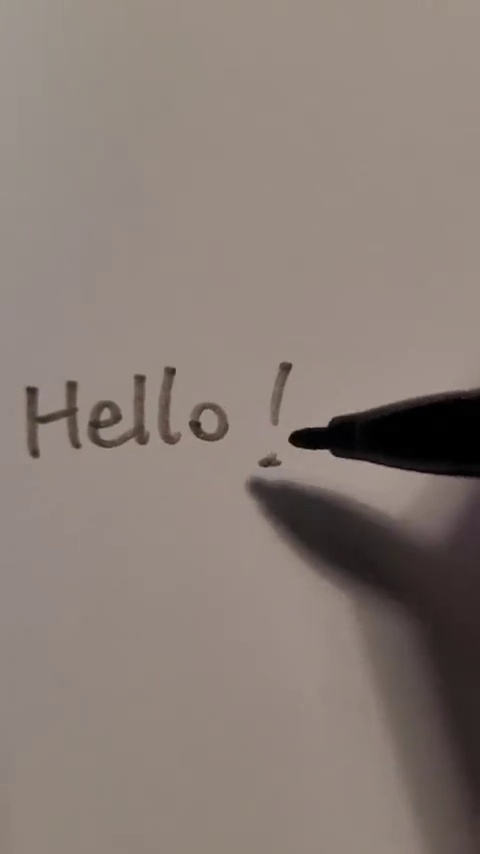 Hello !